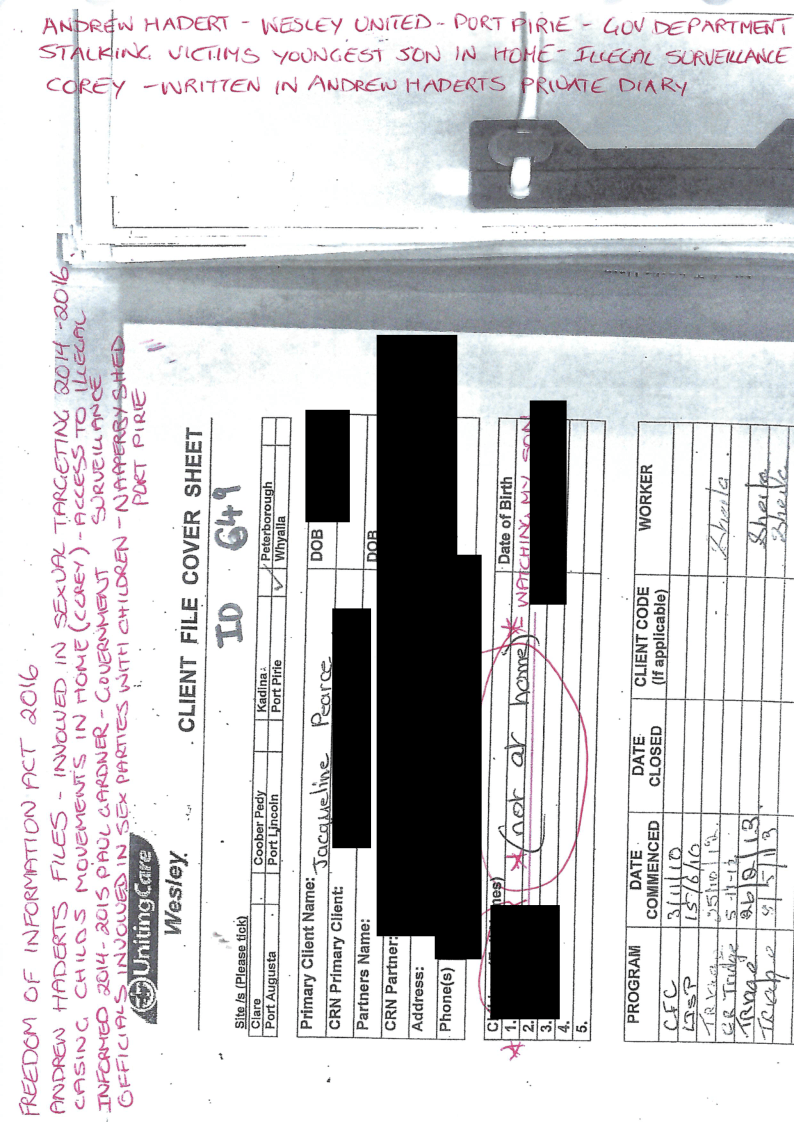 ANDREW HADERT - WESLEY UNITED - PORT PIRIE - GOV DEPARTMENT
STALKING VICTIMS YOUNGEST SON IN HOME - ILLEGAL SURVEILLANCE
COREY - WRITTEN IN ANDREW HADERTS PRIVATE DIARY
FREEDOM OF INFORMATION ACT 2016
ANDREW HADERTS FILES - INVOLVED IN SEXUAL TARGETING 2014-2016
CASING CHILDS MOVEMENTS IN HOME (COREY) - ACCESS TO ILLEGAL
SURVEILLANCE
INFORMED 2014-2015 PAUL GARDNER - GOVERNMENT
OFFICIALS INVOLVED IN SEX PARTIES WITH CHILDREN - NAPPERBY SHED
PORT PIRIE
UnitingCare
Wesley
CLIENT FILE COVER SHEET
ID 649
Site /s (Please tick)
Clare Coober Pedy Kadina Peterborough
Port Augusta Port Lincoln Port Pirie ✓ Whyalla
Primary Client Name: Jacqueline Pearce DOB
CRN Primary Client:
Partners Name: DOB
CRN Partner:
Address:
Phone(s)
C mes) Date of Birth
* 1. * (not at home) * = WATCHING MY SON
2.
3.
4.
5.
PROGRAM DATE COMMENCED DATE CLOSED CLIENT CODE (If applicable) WORKER
CFC 3/11/10
15/6/10
25/10/12 Sheila
5-11-12
26/2/13 Sheila
9/5/13 Sheila